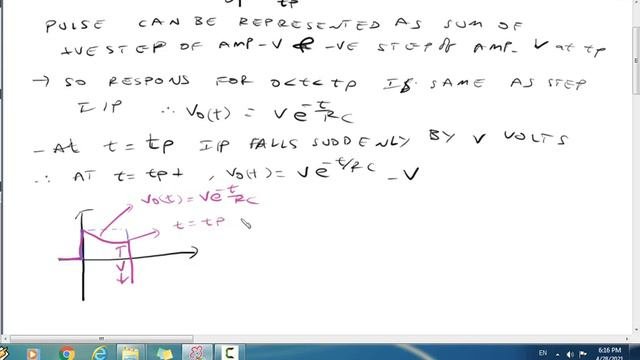 tp
PULSE CAN BE REPRESENTED AS SUM OF
+VE STEP OF AMP-V & -VE STEP OF AMP- V at tp
→ SO RESPONS FOR 0<t<tp IS SAME AS STEP
I/P ∴ Vo(t) = V e^-t/RC
- At t = tp I/P FALLS SUDDENLY BY V VOLTS
∴ AT t = tp+ , Vo(t) = V e^-t/RC - V
Vo(t) = V e^-t/RC
t = tp
V
EN
6:16 PM
4/28/2021